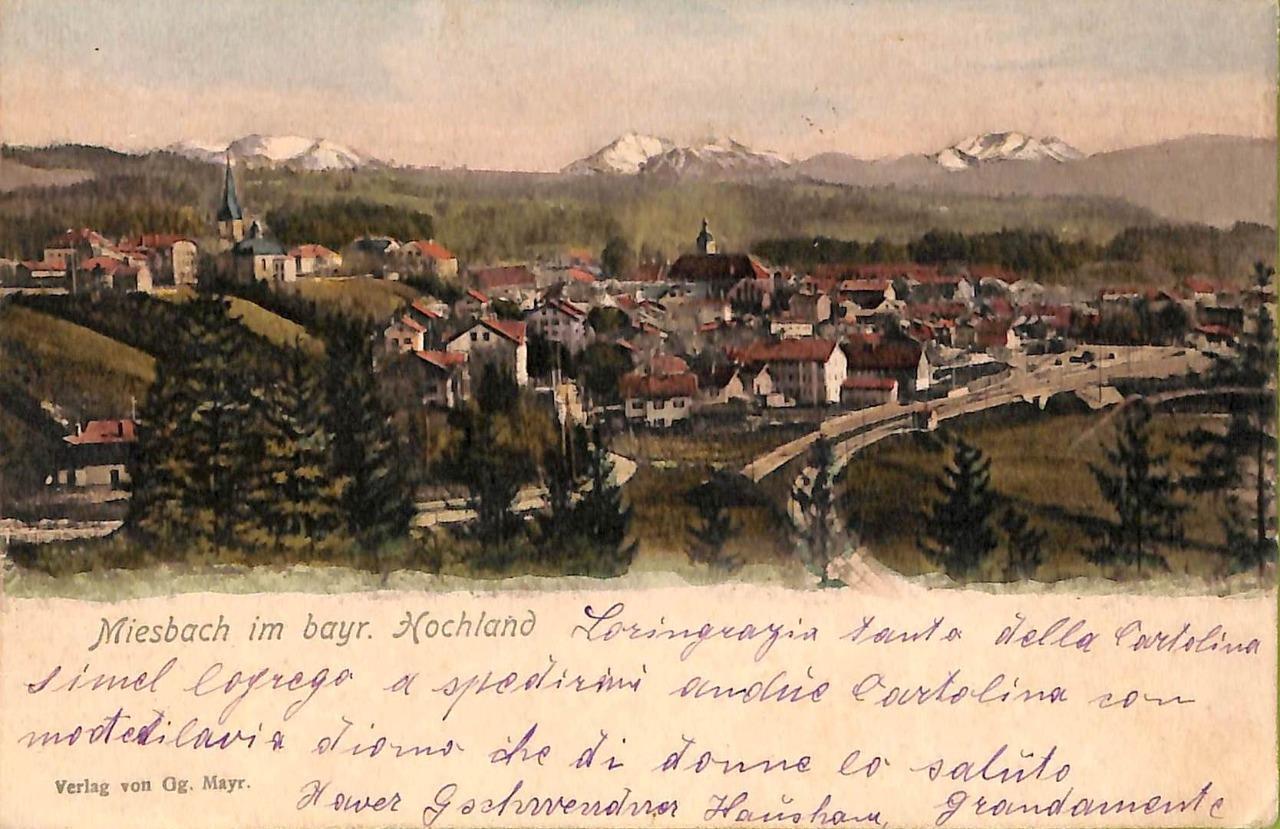 Miesbach im bayr. Hochland Loringrazia tanto della Cartolina
simel loprego a spedirmi anduc Cartolina con
diorno che di donne lo saluto
Verlag von Gg. Mayr.
Xaver Gschwendner Hausham, Grandamente